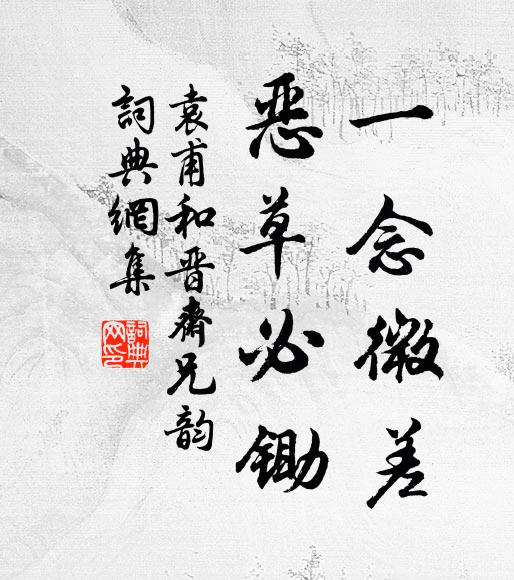 一念微差
恶草必锄
袁甫和晋斋兄韵
詞典網集
詞典
网印